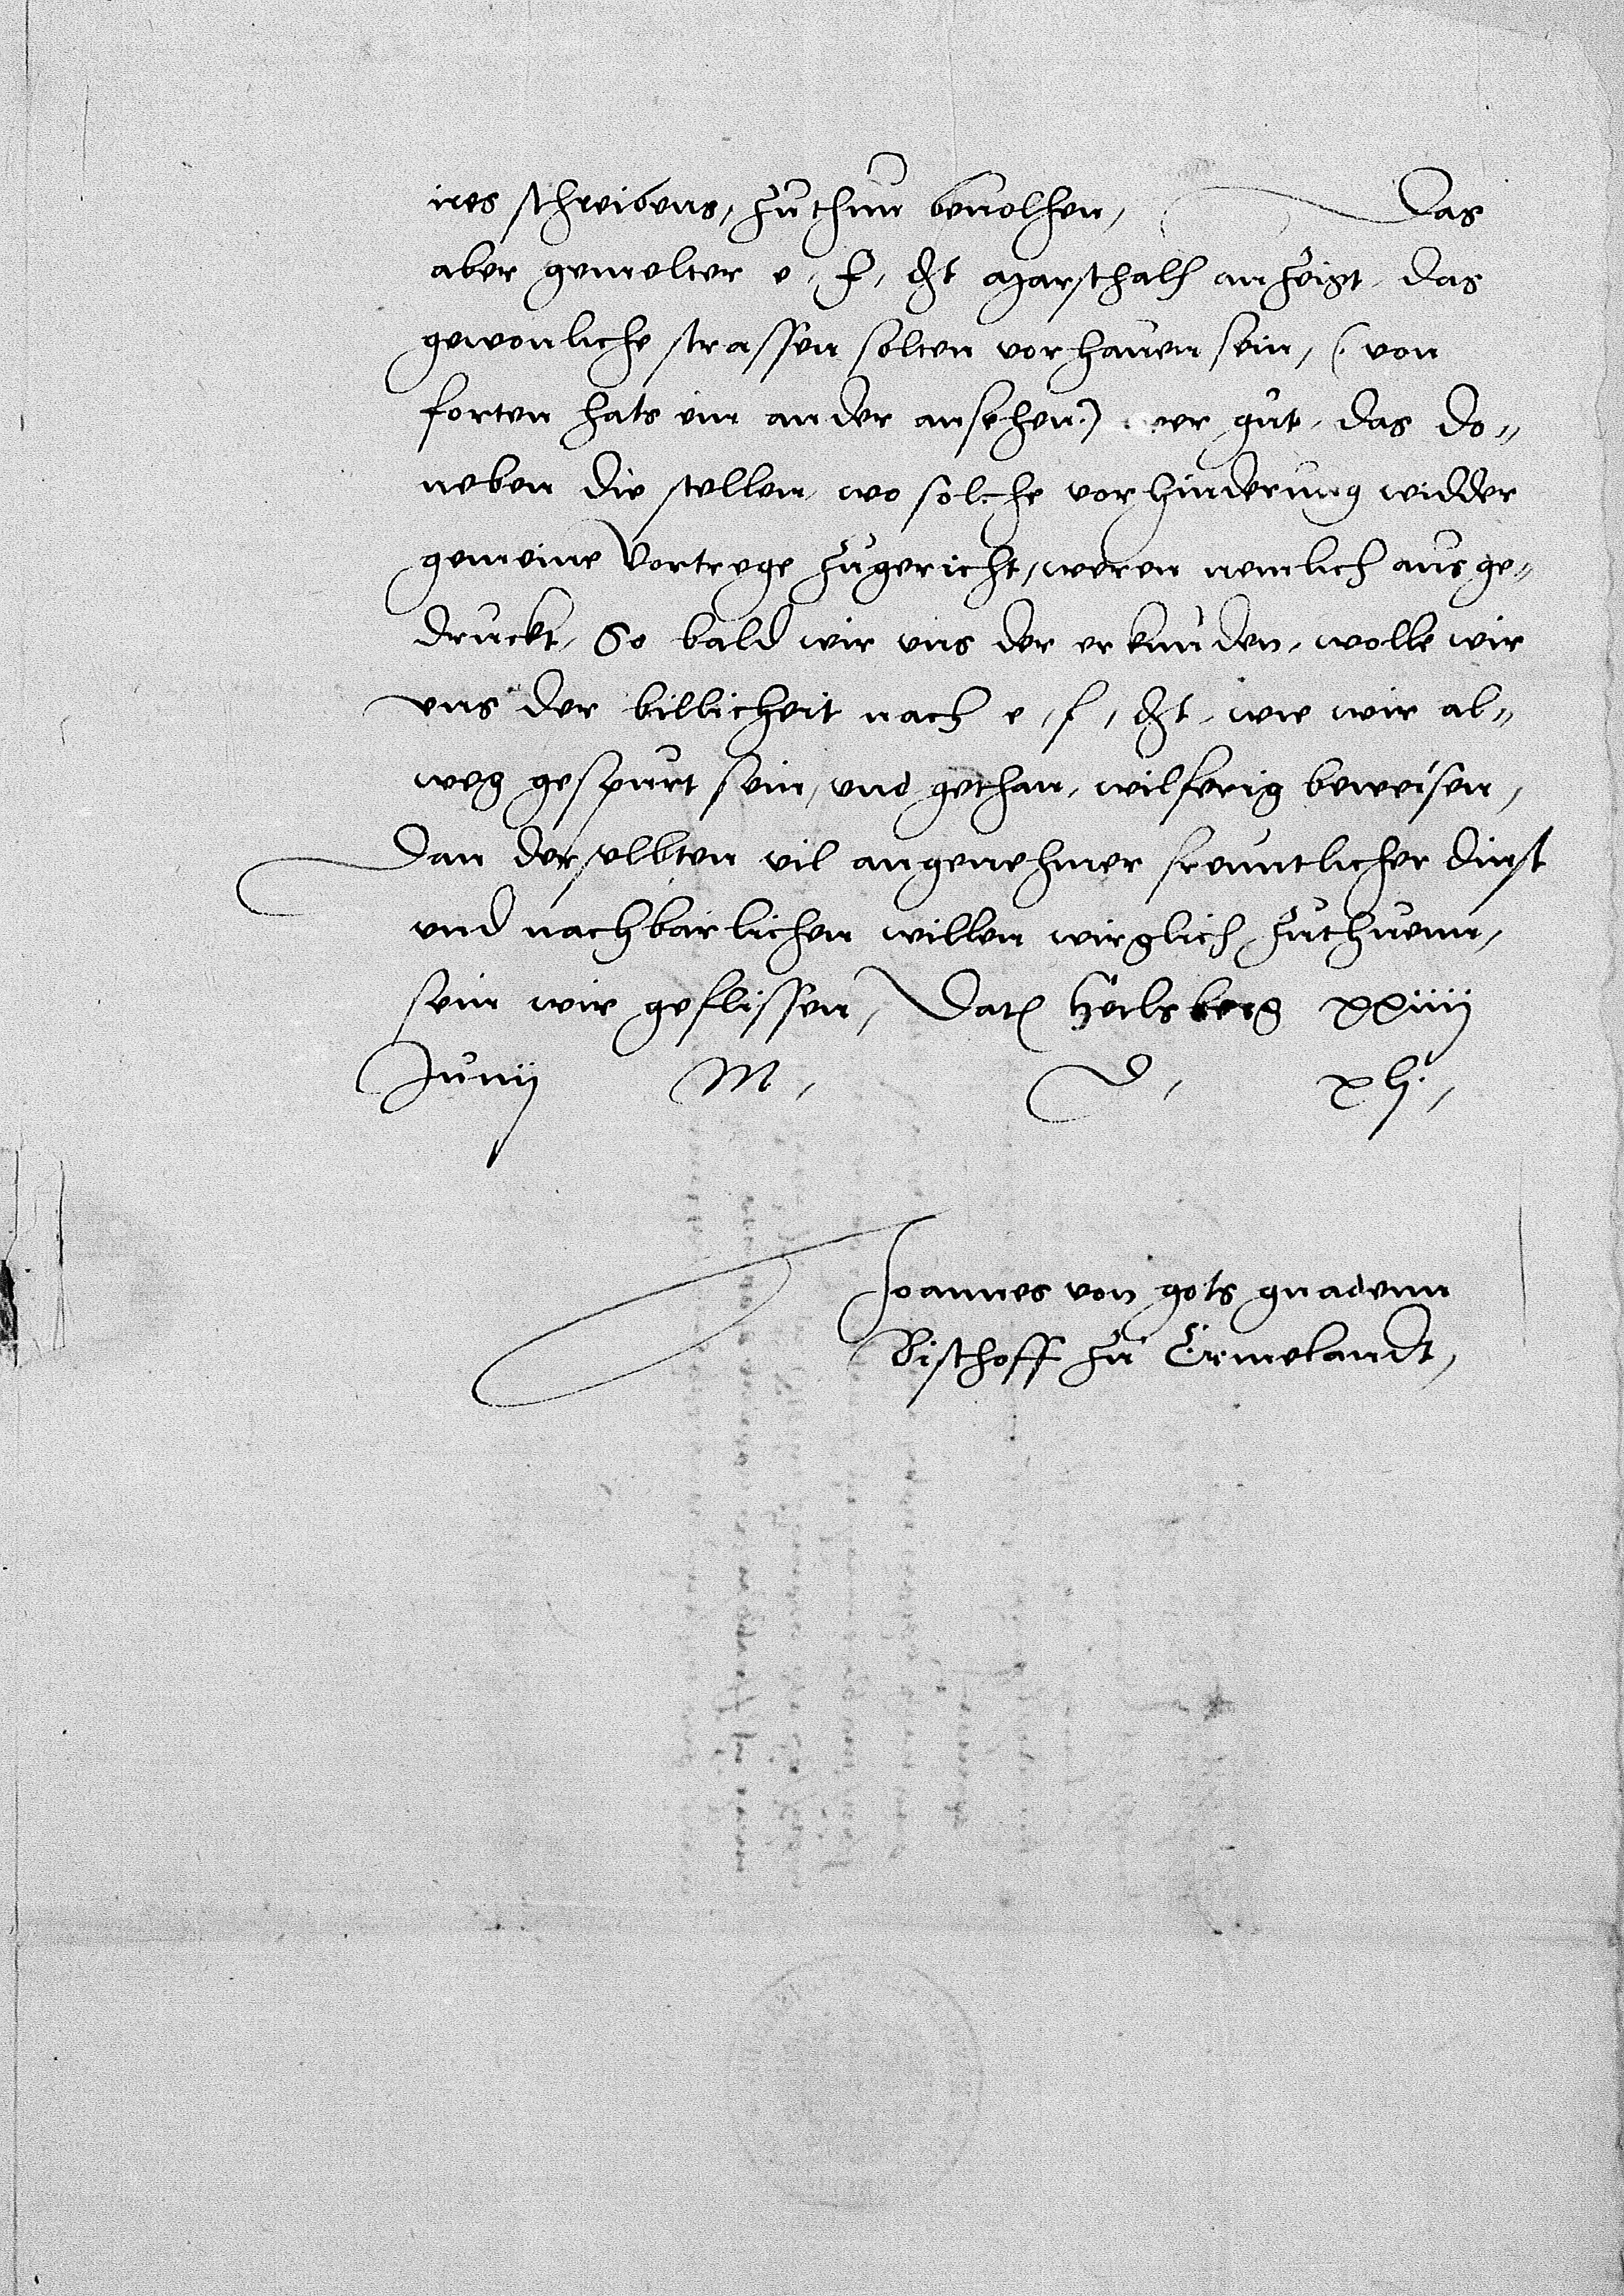 ires schreibens, zuthun beuolhen, Das
aber gemelter e, f, dht Marschalh anzeigt, das
gewonliche strassen solten vorhauen sein, (. von
forten hats ein ander ansehen.) wer gut, das do-
neben die stellen, wo solche vorhinderung widder
gemeine Vortrege zugericht, weren nemlich ausge-
druckt, So bald wir vns der erkunden, wolle wir
vns der billicheit nach e, f, dht, wie wir al-
weg gespurt sein, vnd gethan, wilferig beweisen,
Dan derselbten vil angenehmer freuntlicher dinst
vnd nachbarlichen willen wirglich zuthuenn,
sein wir geflissen, Dat Heilsberg xxiiij
Junij M, D, xlj,
Joannes von gots gnadenn
Bischoff zu Ermelandt,